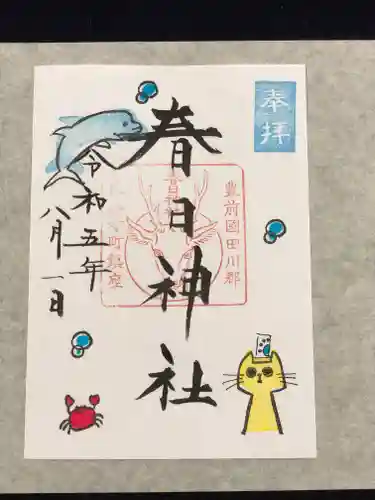 奉拝
春日神社
令和五年
八月一日
豊前國田川郡
春日神社